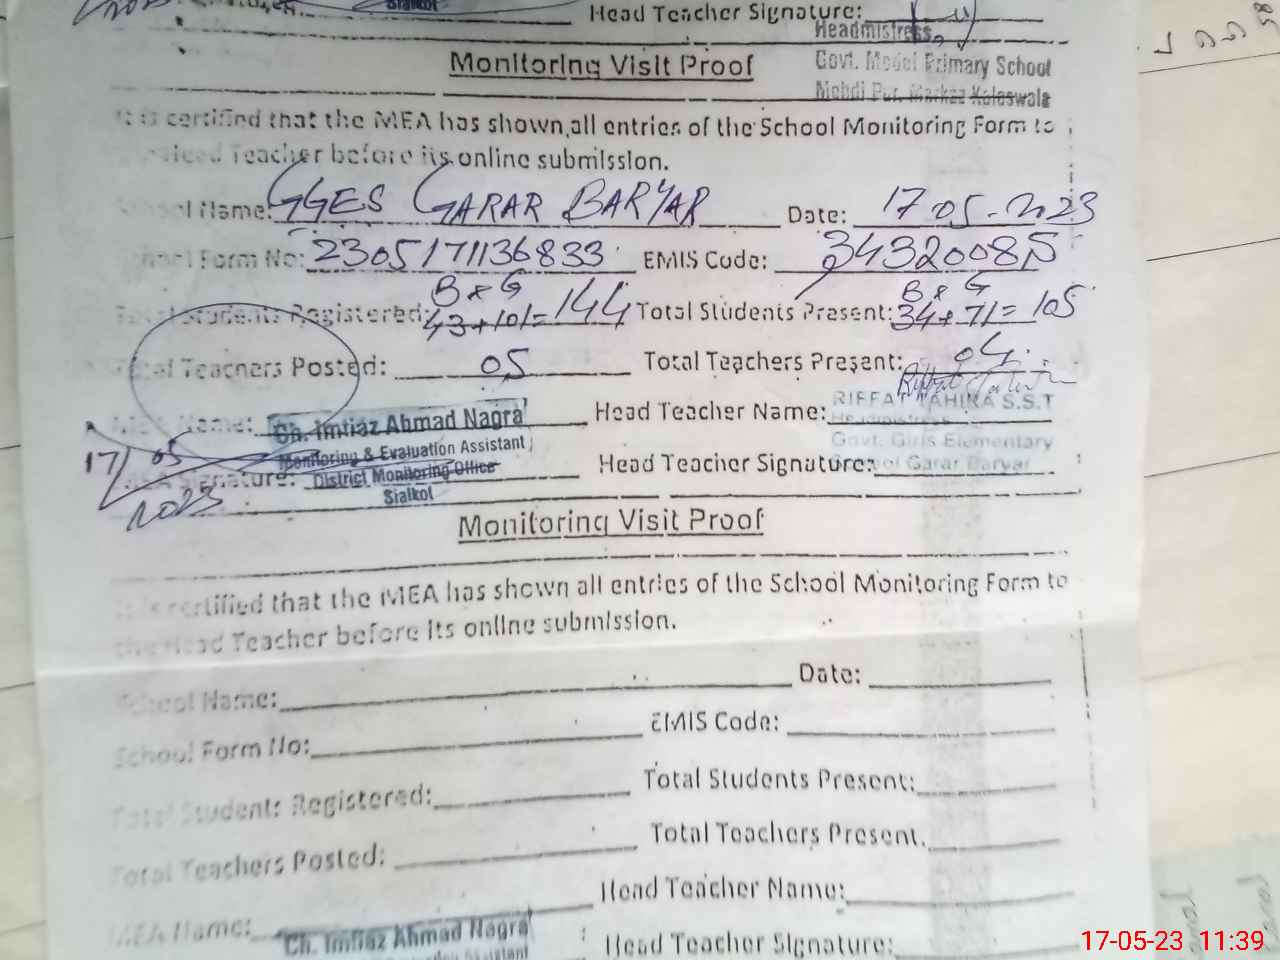 Sialkot
2023 Head Teacher Signature:
Headmistress
Monitoring Visit Proof
Govt. Model Primary School
Mehdi Pur, Markaz Kaleswala
It is certified that the MEA has shown all entries of the School Monitoring Form to
the Head Teacher before its online submission.
School Name: GGES GARAR BARYAR Date: 17-05-2023
School Form No: 2305171136833 EMIS Code: 34320085
B & G B & G
Total Students Registered: 43+101=144 Total Students Present: 34+71=105
Total Teachers Posted: 05 Total Teachers Present: 04
MEA Name: Ch. Imtiaz Ahmad Nagra Head Teacher Name: RIFFAT TAHIRA S.S.T
Headmistress
Monitoring & Evaluation Assistant Govt. Girls Elementary
17/05/2023 MEA Signature: District Monitoring Office Head Teacher Signature: School Garar Baryar
Sialkot
Monitoring Visit Proof
It is certified that the MEA has shown all entries of the School Monitoring Form to
the Head Teacher before its online submission.
School Name: Date:
School Form No: EMIS Code:
Total Students Registered: Total Students Present:
Total Teachers Posted: Total Teachers Present.
MEA Name: Ch. Imtiaz Ahmad Nagra Head Teacher Name:
Head Teacher Signature:
17-05-23 11:39